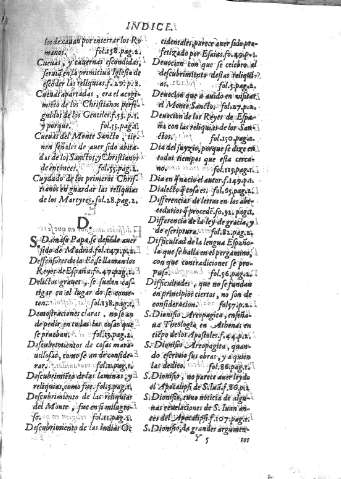 INDICE.
los de cauan por enterrar los Ro
manos. fol.138.pag.2.
Cueuas, y cauernas escondidas,
seruia en la primitiua Iglesia de
esconder las reliquias. f.27.p.2.
Cueuas apartadas, era el
mite de los Christianos perse
guidos de los Gentiles. f.53.p.1.
y porque. fol.53.pag.2.
Cueuas del Monte Santo, tie-
nen señales de auer sido abita
das de los Santos, y Christianos
de entonces. fol.55.pag.2.
Cuydado de los primeros Chris-
tianos en guardar las reliquias
de los Martyres. fol.28.pag.2.
D
S. Damaso Papa, se defiende auer
sido de Madrid. fol.147.p.2.
Defensores de la Fè se llaman los
Reyes de España. fo.47.pag.2.
Delictos graues, se suelen cas-
tigar en el lugar do se come-
ten. fol.138.pag.2.
Demostraciones claras, no se an
de pedir en todas las cosas que
se prueban. fol.15.pag.2.
Descubrimientos de cosas mara-
uillosas, como se an de conside-
rar. fol.21.pag.2.
Descubrimiento de las laminas, y
reliquias, como fue. fol.5.pag.2.
Descubrimiento de las reliquias
del Monte, fue en si milagro-
so. fol.11.pag.2.
Descubrimiento de las Indias Oc
cidentales, parece auer sido pro-
fetizado por Esaias. fo.49.p.2.
Deuocion con que se celebro el
descubrimiento destas reliqui-
as. fol.5.pag.2.
Deuocion que à auido en visitar
el Monte Santo. fol.27.p.2.
Deuocion de los Reyes de Espa-
ña con las reliquias de los San-
tos. fol.150.pag.2.
Dia del juyzio, porque se dize en
todos tiempos que esta cerca-
no. fol.119.pag.1.
Dia en que nacio el autor. f.149.p.1.
Dialecto que cosa es. fol.65.pag.2.
Differencias de letras en los abe-
cedarios que procede. fo.32.pag.2.
Differencia de la ley de gracia, y
de escriptura. fol.2.pag.2.
Difficultad de la lengua Españo-
la que se halla en el pergamino,
con que contradiciones se pro-
pone. fol.56.pag.2.
Difficultades, que no se fundan
en principios ciertos, no son de
consideracion. fol.57.pag.2.
S. Dionysio Areopagita, enseña-
ua Theologia en Athenas en
tiempo de los Apostoles. f.44.p.2.
S. Dionysio Areopagita, quan-
do escriuio sus obras, y a quien
las dedico. fol.86.pag.2.
S. Dionysio, no parece auer leydo
el Apocalipsi de S. Iuã. f.86.p.2.
S. Dionysio, tuuo noticia de algu-
nas reuelaciones de S. Iuan an-
tes del Apocalypsi. f.107.pag.2.
S. Dionysio, da grandes argumen-
Y 5